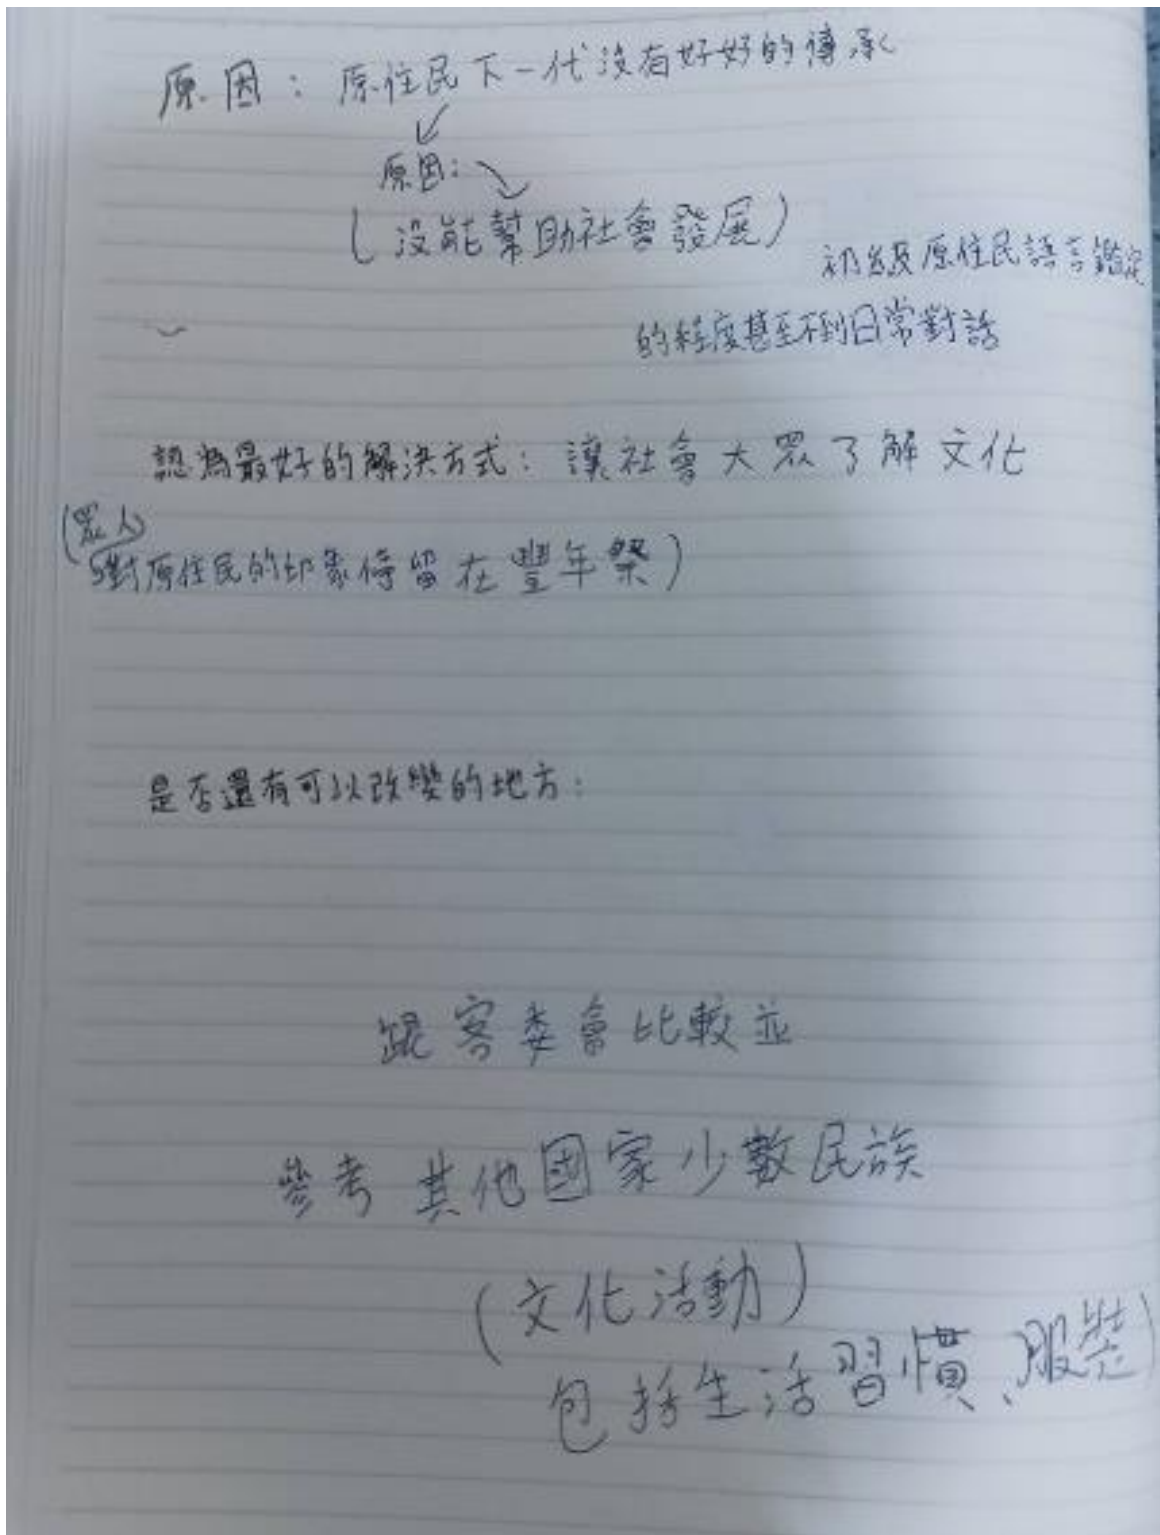 原因：原住民下一代沒有好好的傳承
原因：
(沒能幫助社會發展)
初級原住民語言鑑定
的程度甚至不到日常對話
認為最好的解決方式：讓社會大眾了解文化
(眾人
對原住民的印象停留在豐年祭)
是否還有可以改變的地方：
跟客委會比較並
參考其他國家少數民族
(文化活動)
包括生活習慣、服裝)